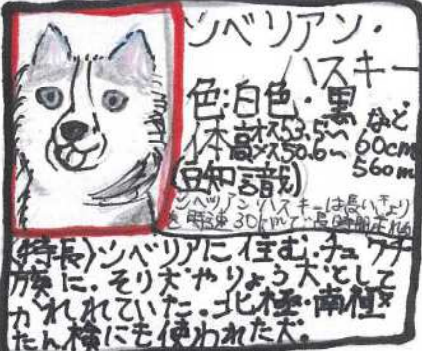 シベリアン・
ハスキー
色:白色・黒など
体高オス53.5〜60cm
体高メス50.6〜56cm
(豆知識)
シベリアンハスキーは長いきょり
を時速30kmで長時間走れる
(特長)シベリアに住む、チュクチ
族に、そり犬やりょう犬として
かわれれていた。北極・南極
たん検にも使われた犬。